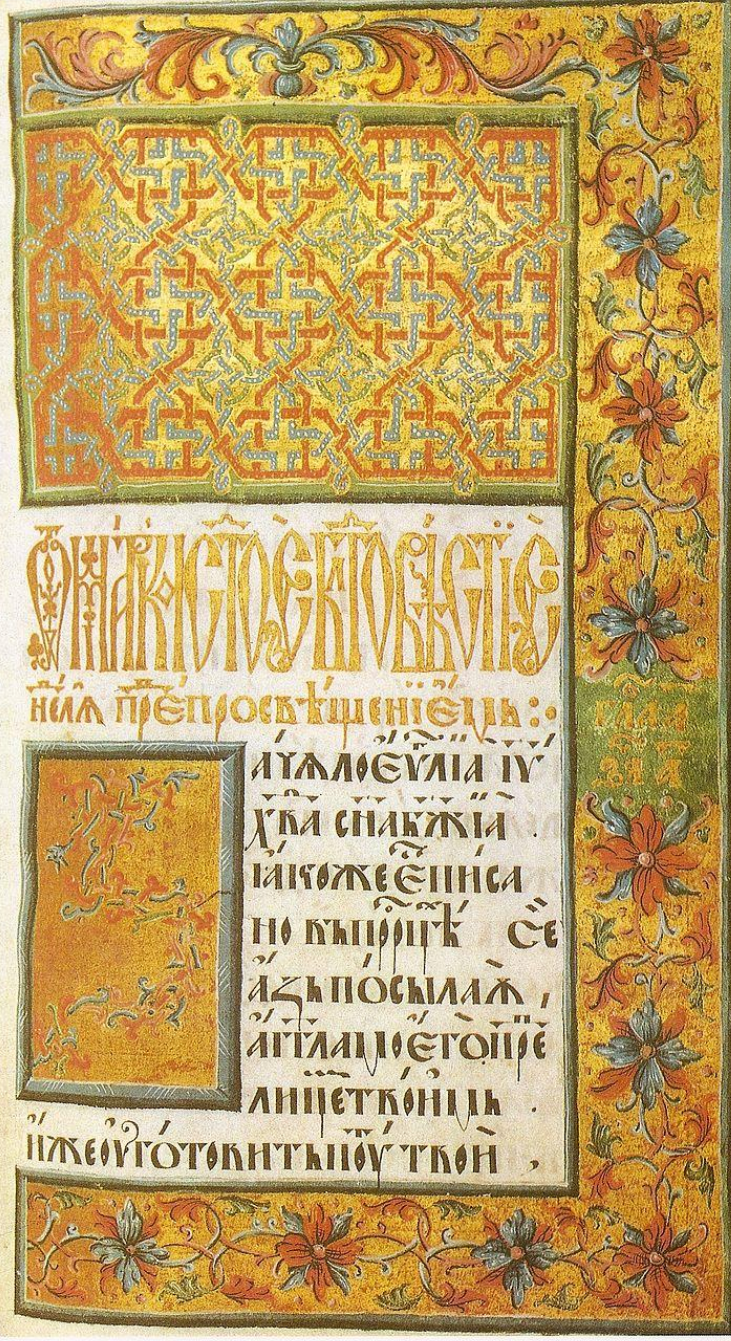 ѿ марка ст҃ое бл҃говѣстїе
нел҃ѧ прѣ просвѣщенїемь :·
ꙁачѧло еѵ҃лїа іѵ҃
хв҃а сн҃а бж҃їа .
ꙗкоже е҆ писа
но въ прⷪ҇рцѣ се
аꙁь посылаѧ ,
аг҃гла моего прѣ
лицеⷨ твоимь .
иже оуготовить пѹⷮ твои ,
глава
а҃